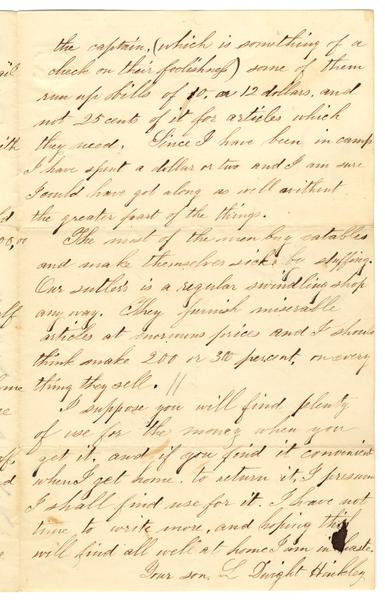 the captain, (which is something of a
check on their foolishness) some of them
run up bills of 10, or 12 dollars, and
not 25 cent of it for articles which
they need. Since I have been in camp
I have spent a dollar or two and I am sure
I could have got along as well without
the greater part of the things.
The most of the men buy eatables
and make themselves sick by stuffing.
Our sutler's is a regular swindling shop
any way. They furnish miserable
articles at enormous prices and I should
think make 200 or 300 percent, on every
thing they sell. //
I suppose you will find plenty
of use for the money when you
get it, and if you find it convenient
when I get home to return it, I presume
I shall find use for it. I have not
time to write more, and hoping this
will find all well at home I am in haste
Your son, L Dwight Hinkley